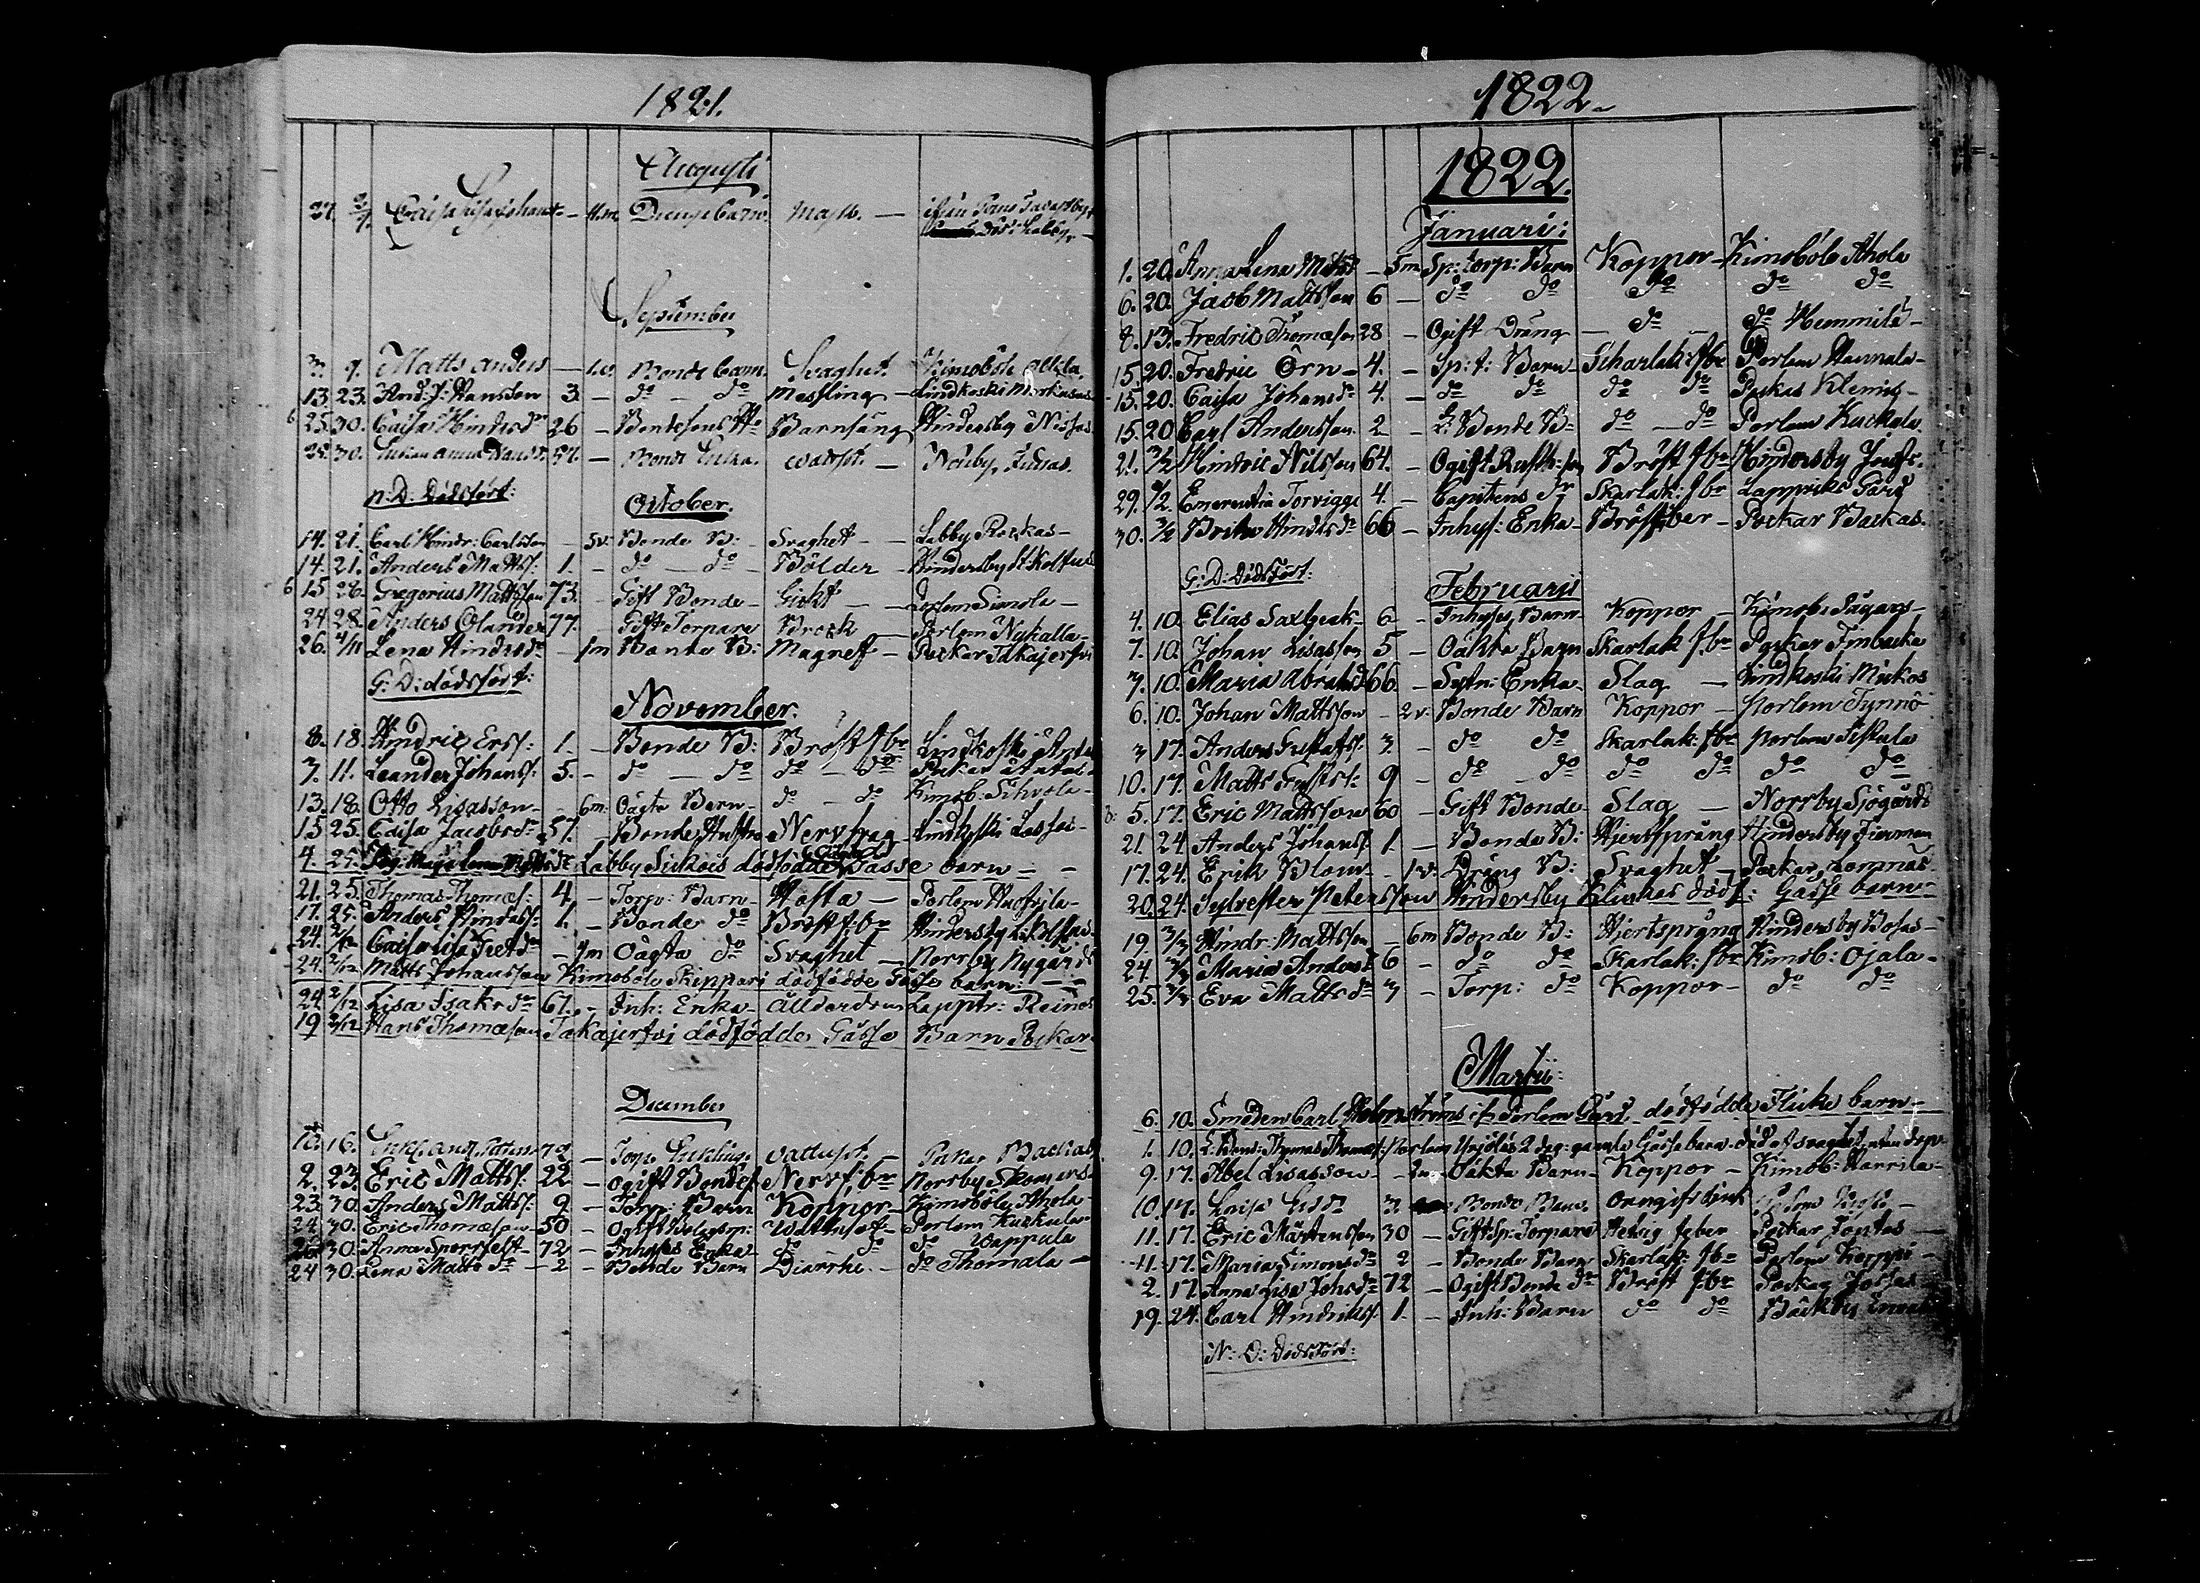 1821.
Augusti
27. 2/9. Caisa Lisa Johansd: — 11.m. Drengs barn. Mask. — ifrån
död i Labby. —
September
3. 9. Matts Anders — 1.v. Bonde barn. Svaghet. Kimoböle Alkila.
13. 23. And: J: Hansson 3. — do — do Messling — Lindkoski Markusas
6 25. 30. Caisa Hindrsdr 26 — Bondesons Ho Barnsäng Hindersby Nissas
25. 30. Enkan Anna Hansd: 57. — Bonde Enka. wattsot. — Norrby Jussas.
N: D: Dödsfört:
October.
14. 21. Carl Hindr: Carlsson — 5v: Bonde B: Svaghet — Labby Rockas —
14. 21. Anders Matts: 1. — do — do — Bölder — Hindersby St Koltus
6 15. 28. Gregorius Mattsson 73. — Gift Bonde — Gickt — Porlom Simola —
24 28. Anders Olander 77. — Gift Torpare Brock — Porlom Nykalla —
26. 4/11 Lena Hindrsdr — 1m Bonde B: Magref — Pockar Takajerfvi
G: D: dödsfört:
November.
8. 18. Hindric Erss: 1. — Bonde B: Bröst fbr Lindkoski
7. 11. Leander Johanss: 5. — do — do do — do Pockar
13. 18. Otto Lisasson — 6m: Oägta Barn — do — do Kimob: Sihvola —
15 25. Caisa Jacobsdr 57. — Bonde Hustru Nervfrag — Lindkoski Lasses —
4. 25. Labby Sickois dödfödde Gasse barn — —
21. 25. Thomas Thomæs: 4 — Torp: Barn — Hosta — Porlom
17. 25. Anders Hindrss: 1. — Bonde do Bröst fbr Hindersby L: Koltus —
24. 2/12 Caisa Lisa dr — 9m Oägta do Svaghet — Norrby Nygårds
24. 2/12 Matts Johansson Kimoböle Skippari dödfödde Gåsse barn: — —
24 2/12 Lisa Isaks dr 61. — Inh: Enka — Ållderdom Lapptr: Reinos
19 2/12 Hans Thomæson Takajerfvi dödfödde Gåsse Barn Pockar
December
10. 16. 72 — Torp. vattusot. — Pockar Backas
2. 23. Eric Matts: 22 — Ogift Bondes: Nervf: br Norrby Skomars
23 30. Anders Matts: 9 — Torp: Barn Koppor — Kimoböle Ahola —
24 30. Eric Thomæson — 50 — Ogift Wattusot — Porlom Kuckula
30. Anna Sparrfelt — 72 — Inhyses Enka — do do do Wappula
24 30. Lena Matts dr — 2 — Bonde Barn Diarrhe. — do Thomala —
1822.
1822.
Januari:
1. 20. Anna Lena Matsd — 5m Sp: torp: Barn Koppor — Kimoböle Ahola
6. 20. Jacob Mattsson 6 — do do do do do
8. 13. Fredric Thomæson 28 — Ogift Dräng — do — do Hemmilä —
15. 20. Fredric Örn — 4. — Sp: t: Barn — Scharlak: fbr Porlom Hannula —
15. 20. Caisa Johansdr 4. — do do do do Pockar Klemis —
15. 20 Carl Andersson 2 — L: Bonde B: do — do Porlom Kuckula
21. 3/2 Hindric Nilsson 64. — Ogift Bröst fbr Hindersby
29. 9/2. Emerentia Torvigge 4. — Capitens dr Skarlak: fbr Lappträsk Gård
30. 3/2 Brita Hindrsdr 66 — Inhys: Enka — Bröstfeber — Pockar Backas.
G: D: Dödsfört:
Februarii
4. 10. Elias Saxbeck — 6 — Inhyses Barn — Koppor — Kimob:
7. 10. Johan Lisasson 5 — Oäkta Barn Skarlak fbr Pockar Finbacka
7. 10. Maria Abrahsd 66. — Sytn: Enka — Slag — Lindkoski Mickos
6. 10. Johan Mattsson — 2v: Bonde Barn Koppor — Porlom Tynnö
3 17. Anders Gustafss: 3. — do do Skarlak: fbr Porlom Siskula
10. 17. Matts Gustss: 9 — do do do do do do
5. 17. Eric Mattsson 60 — Gift Bonde — Slag — Norrby Sjögårds
21. 24 Anders Johanss: 1. — Bonde B: Hiertsprång Hindersby
17. 24. Erik Blom — 1v. Dräng B: Svaghet — Pockar Lomnäs
20. 24. Sylvester Petersson Hindersby Klinkas dödf: Gasse barn —
19 3/3 Hindr: Mattsson — 6m Bonde B: Hiertsprång Hindersby Bosas —
24 3/3 Maria Andersd 6 — do do Skarlak: fbr Kimob: Ojala —
25. 3/3 Eva Matts dr 7 — Torp: do Koppor — do do
Martii:
6. 10. Smeden Carl Holmströms ifr Porlom Gård. dödfödde Flicke barn —
1. 10. L: Bond: Thomas Thomæss: Porlom 2 dag: gamla Gåssebarn död af svaghet utan dop
9. 17. Abel Lisasson — 2m — Oäkta Barn — Koppor — Kimob: Harrila —
10. 17. Caisa 3. Bonde Barn
11. 17. Eric Mårtensson 30 — Gift Sp: Torpare Hetsig feber Pockar Jontas —
11. 17. Maria Simonsdr 2 — Bonde Barn Skarlak: fbr Porlom Koppri —
2. 17. Anna Lisa Johsdr 72 — Ogift Bonde dr Bröst fbr Pockar Jossas —
19. 24. Carl Hindrikss: 1. — Inh: Barn do do Bäckby
N: D: Dödsfört: